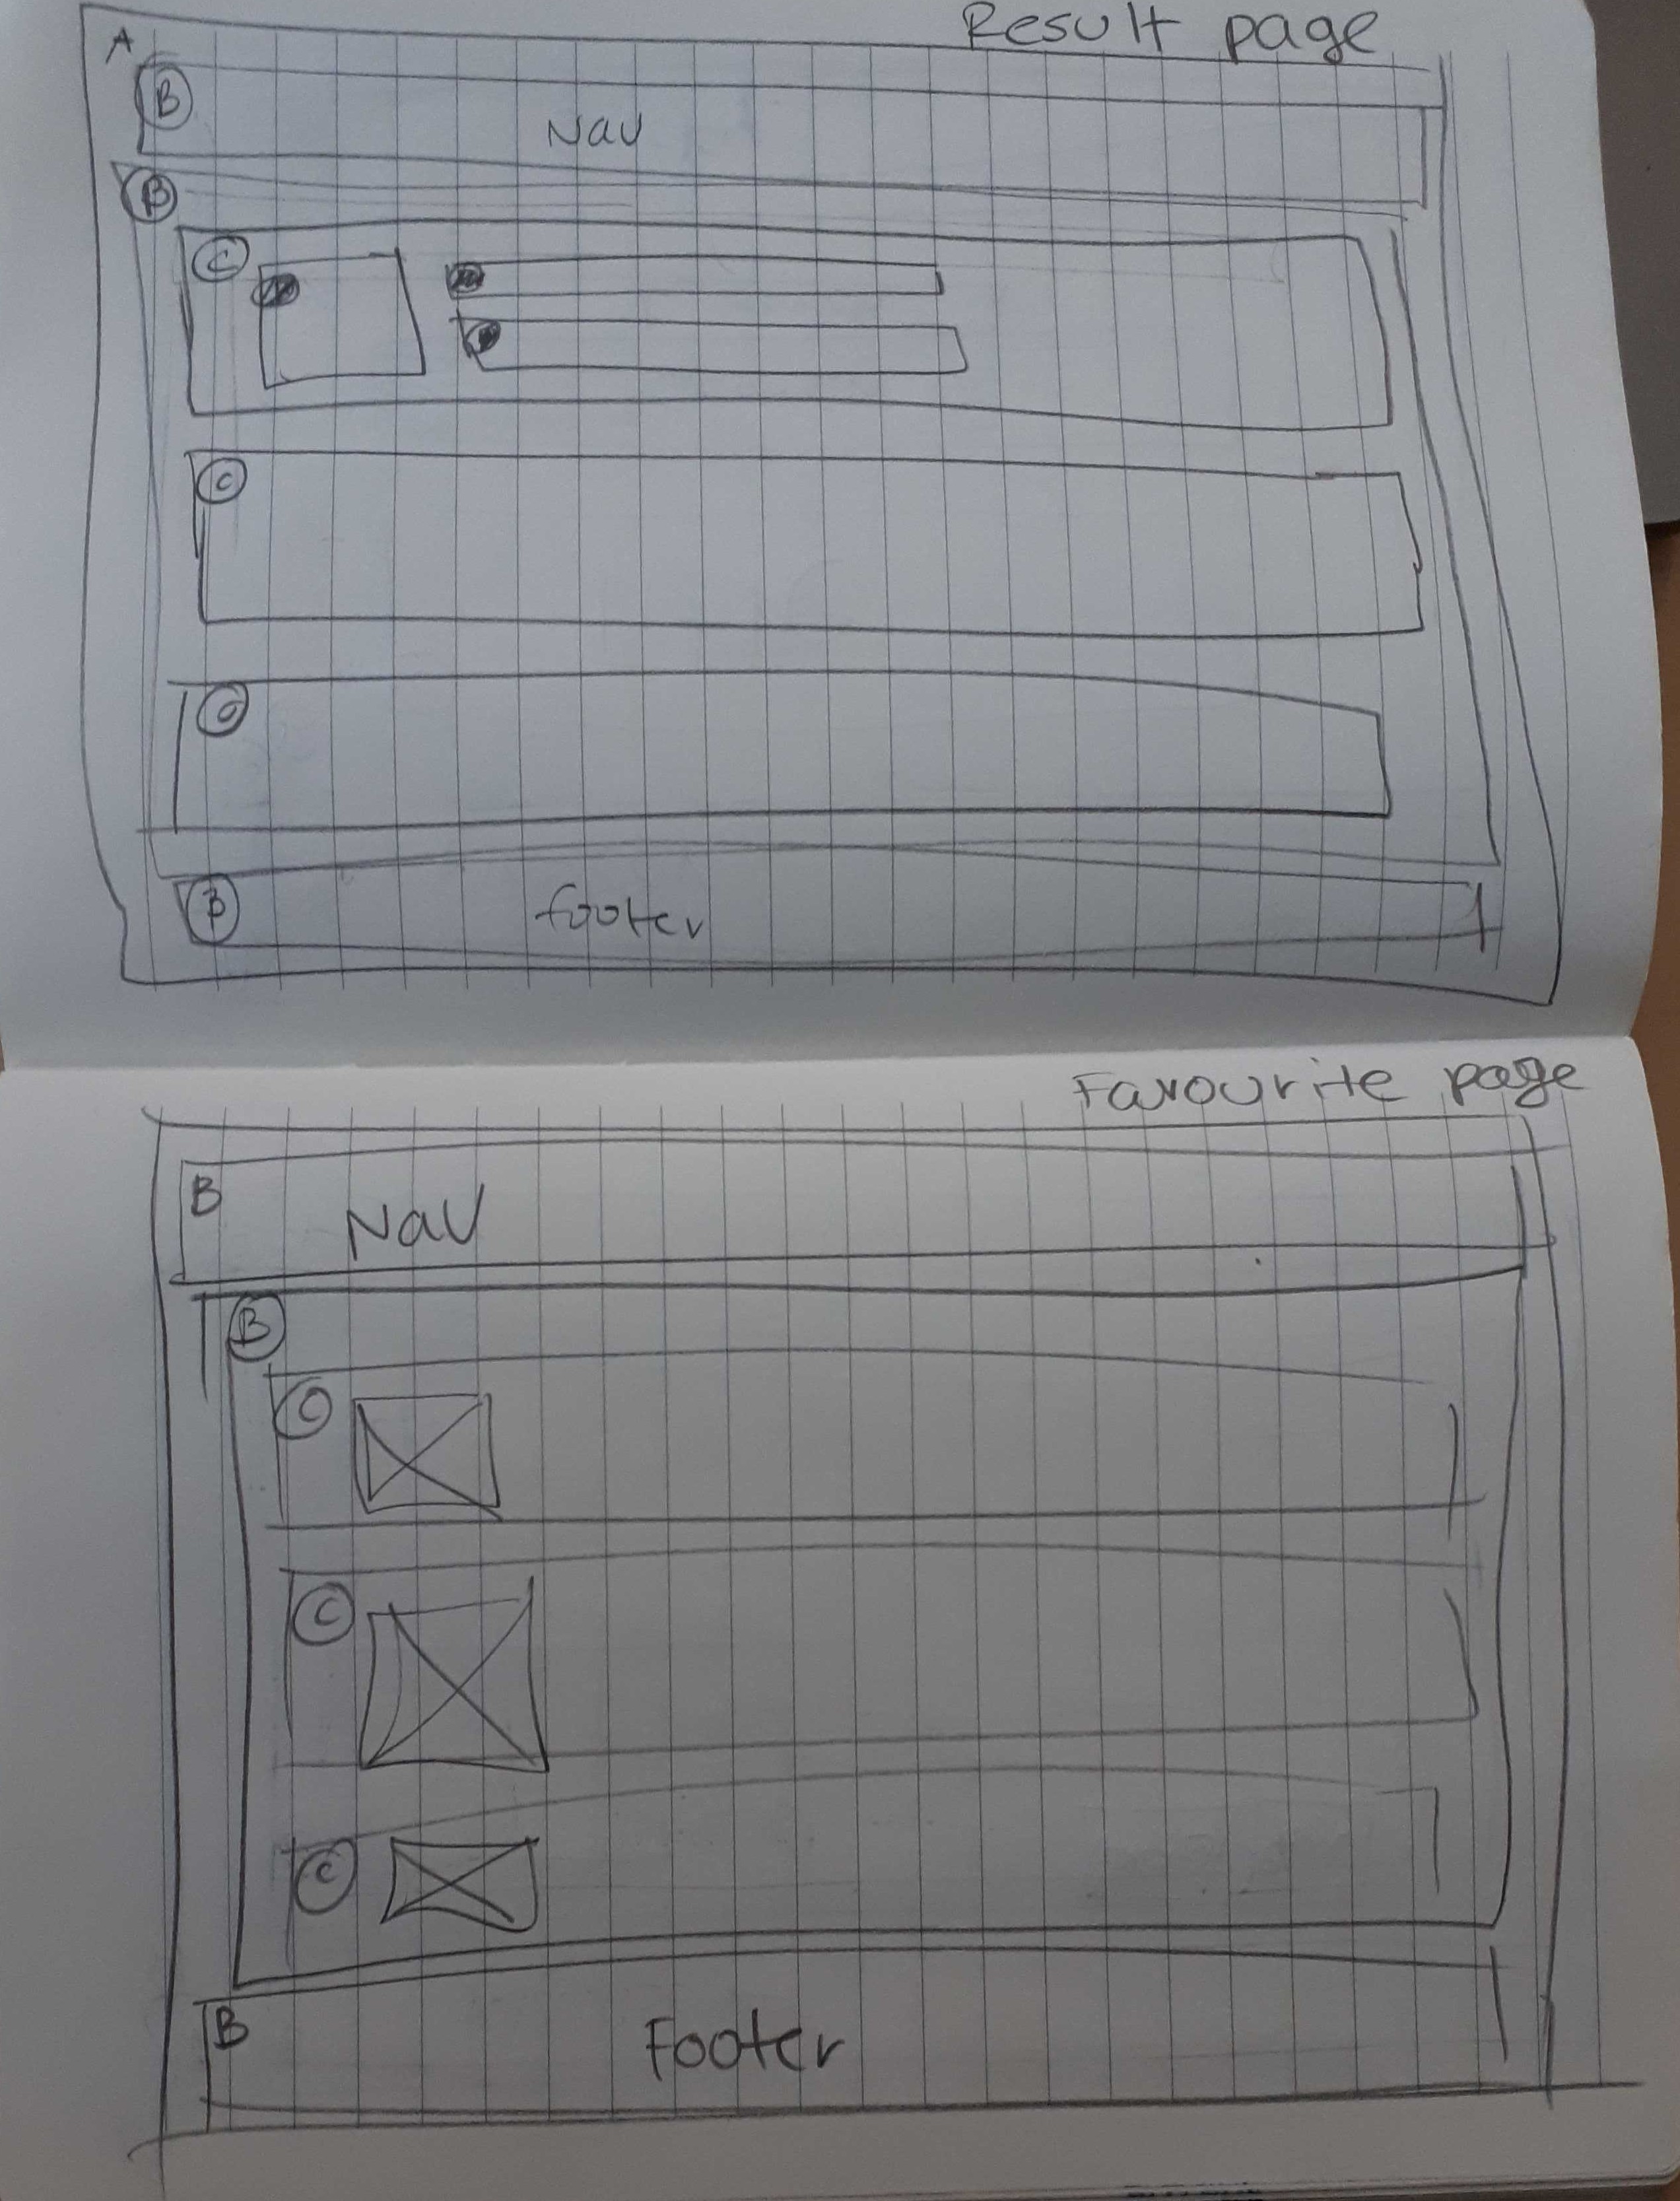 Result page
A
B
Nav
B
C
C
C
B
footer
Favourite page
B
Nav
B
C
C
C
B
Footer